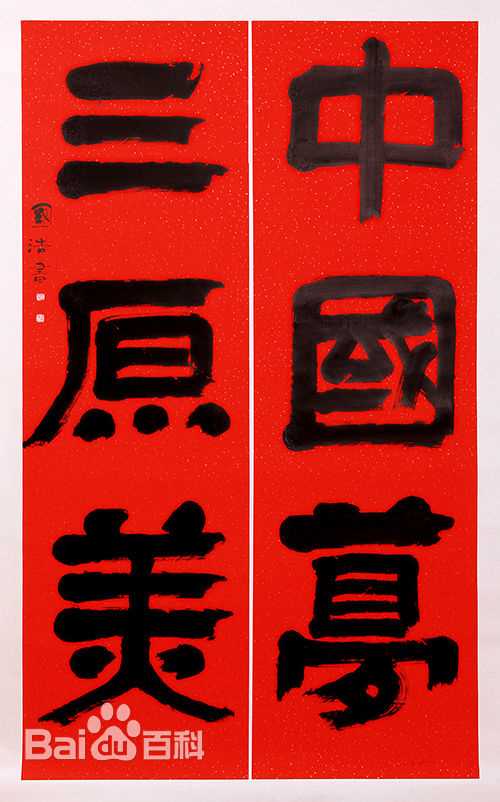 中國夢
三原美
國浩書
Bai du 百科